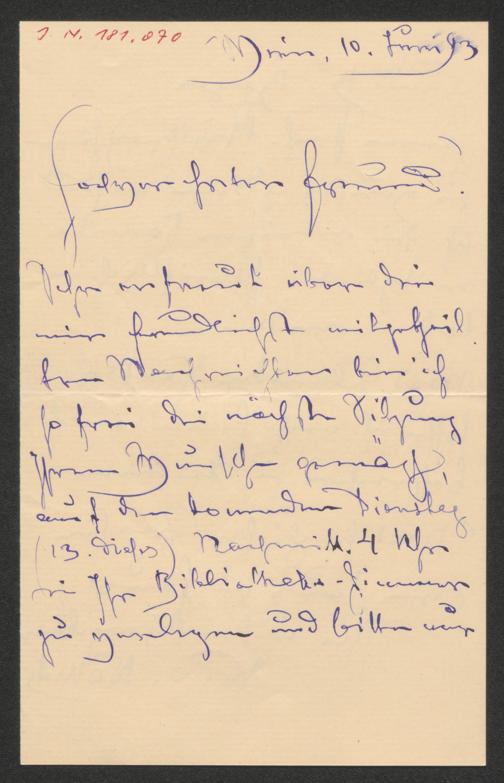 J. N. 181.070
Wien, 10. Juni 93
Hochverehrter Freund!
Sehr erfreut über die
mir freundlichst mitgetheil
ten Nachrichten bin ich
so frei die nächste Sitzung
Ihrem Wunsche gemäß,
auf den kommenden Dienstag
(13. dieses) Nachmitt. 4 Uhr
in Ihr Bibliotheks-Zimmer
zu verlegen und bitte nur